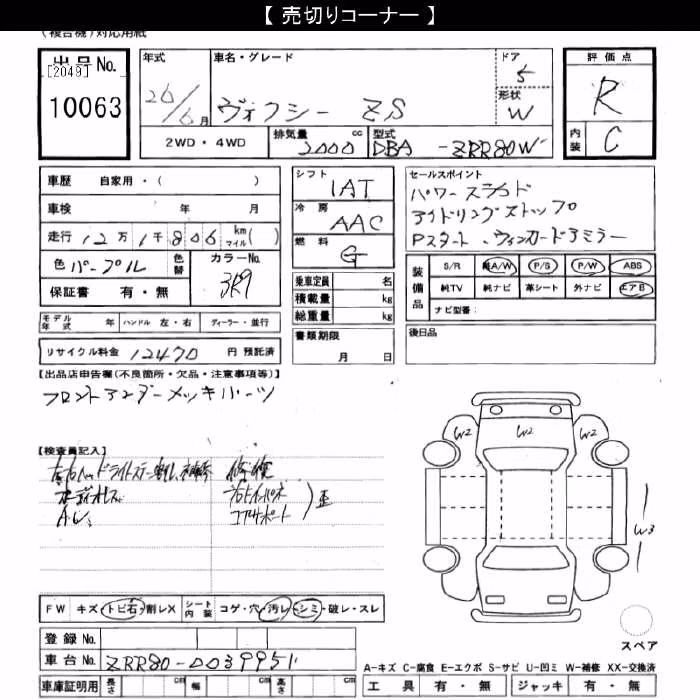 【 売切りコーナー 】
(複合機)対応用紙
出品No.
[2049]
10063
年式
26/6月
車名・グレード
ヴォクシー ZS
ドア
5
形状
W
評価点
R
内装
C
2WD・4WD
排気量
2000 cc
型式
DBA -ZRR80W
車歴 自家用・( )
車検 年 月
走行 12万1千806 km マイル( )
色 パープル
色替
カラーNo.
3R9
保証書 有・無
シフト
1AT
冷房
AAC
燃料
G
乗車定員 名
積載量 kg
総重量 kg
セールスポイント
パワースライド
アイドリングストップ
Pスタート、ウィンカードアミラー
装備品
S/R 純A/W P/S P/W ABS
純TV 純ナビ 革シート 外ナビ エアB
ナビ型番:
モデル年式 年 ハンドル 左・右 ディーラー・並行
リサイクル料金 12470 円 預託済
書類期限
月 日
後日品
【出品店申告欄(不良箇所・欠品・注意事項等)】
フロントアンダーメッキパーツ
【検査員記入】
左右ヘッドライトステー
修復
オーディオレス
コアサポート
歪
W2
W2
W2
W3
FW キズ・トビ石・割レX
シート内装 コゲ・穴・汚レ・シミ・破レ・スレ
登録No.
車台No. ZRR80-0039951
車庫証明用 長さ cm 幅 cm 高さ cm
スペア
A-キズ C-腐食 E-エクボ S-サビ U-凹ミ W-補修 XX-交換済
工具 有・無 ジャッキ 有・無